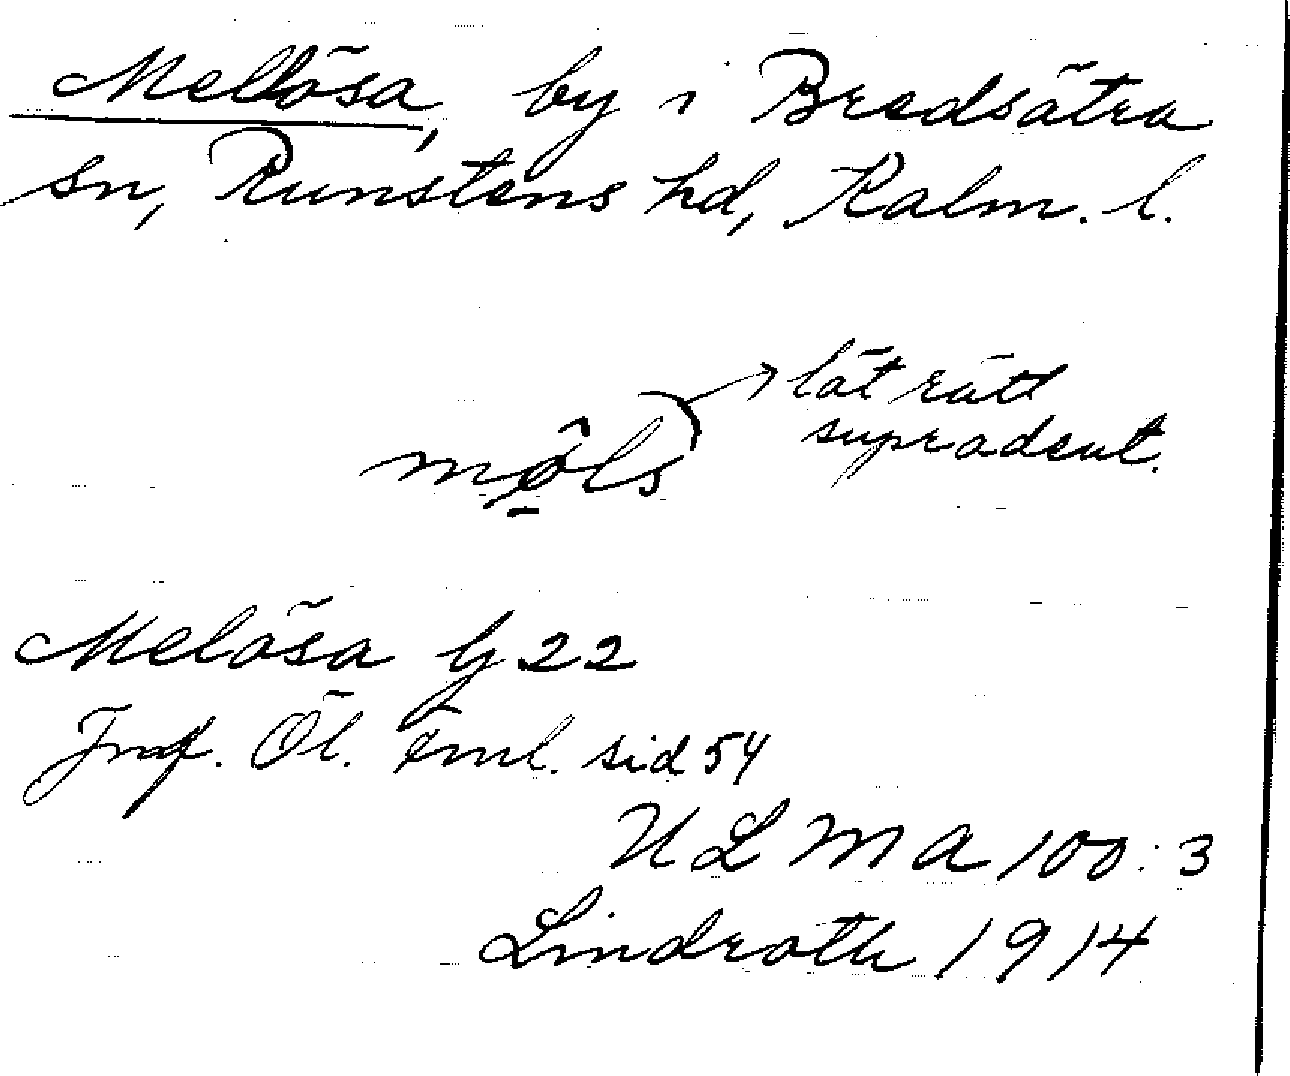 Mellösa, by i Bredsätra
sn, Runstens hd, Kalm. l.
lät rätt
supradent.
Melösa G 22
Jmf. Öl. fml. sid 54
ULMA 100:3
Lindroth 1914